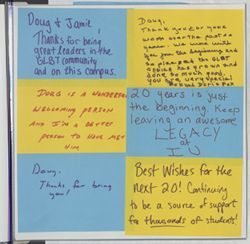 Doug & Jamie!
Thanks for being
great leaders in the
GLBT community
and on this campus.
Doug,
Thank you for your
work over the past 20
years. We were with
you from the beginning and
the GLBT
office has grown and
done so much good.
you are very special
DOUG IS A WONDERFUL
WELCOMING PERSON
AND I'M A BETTER
PERSON TO HAVE MET
HIM
20 years is just
the beginning. Keep
leaving an awesome
LEGACY
at
IU
Doug,
Thanks for being
you!
Best Wishes for the
next 20! Continuing
to be a source of support
for thousands of students!